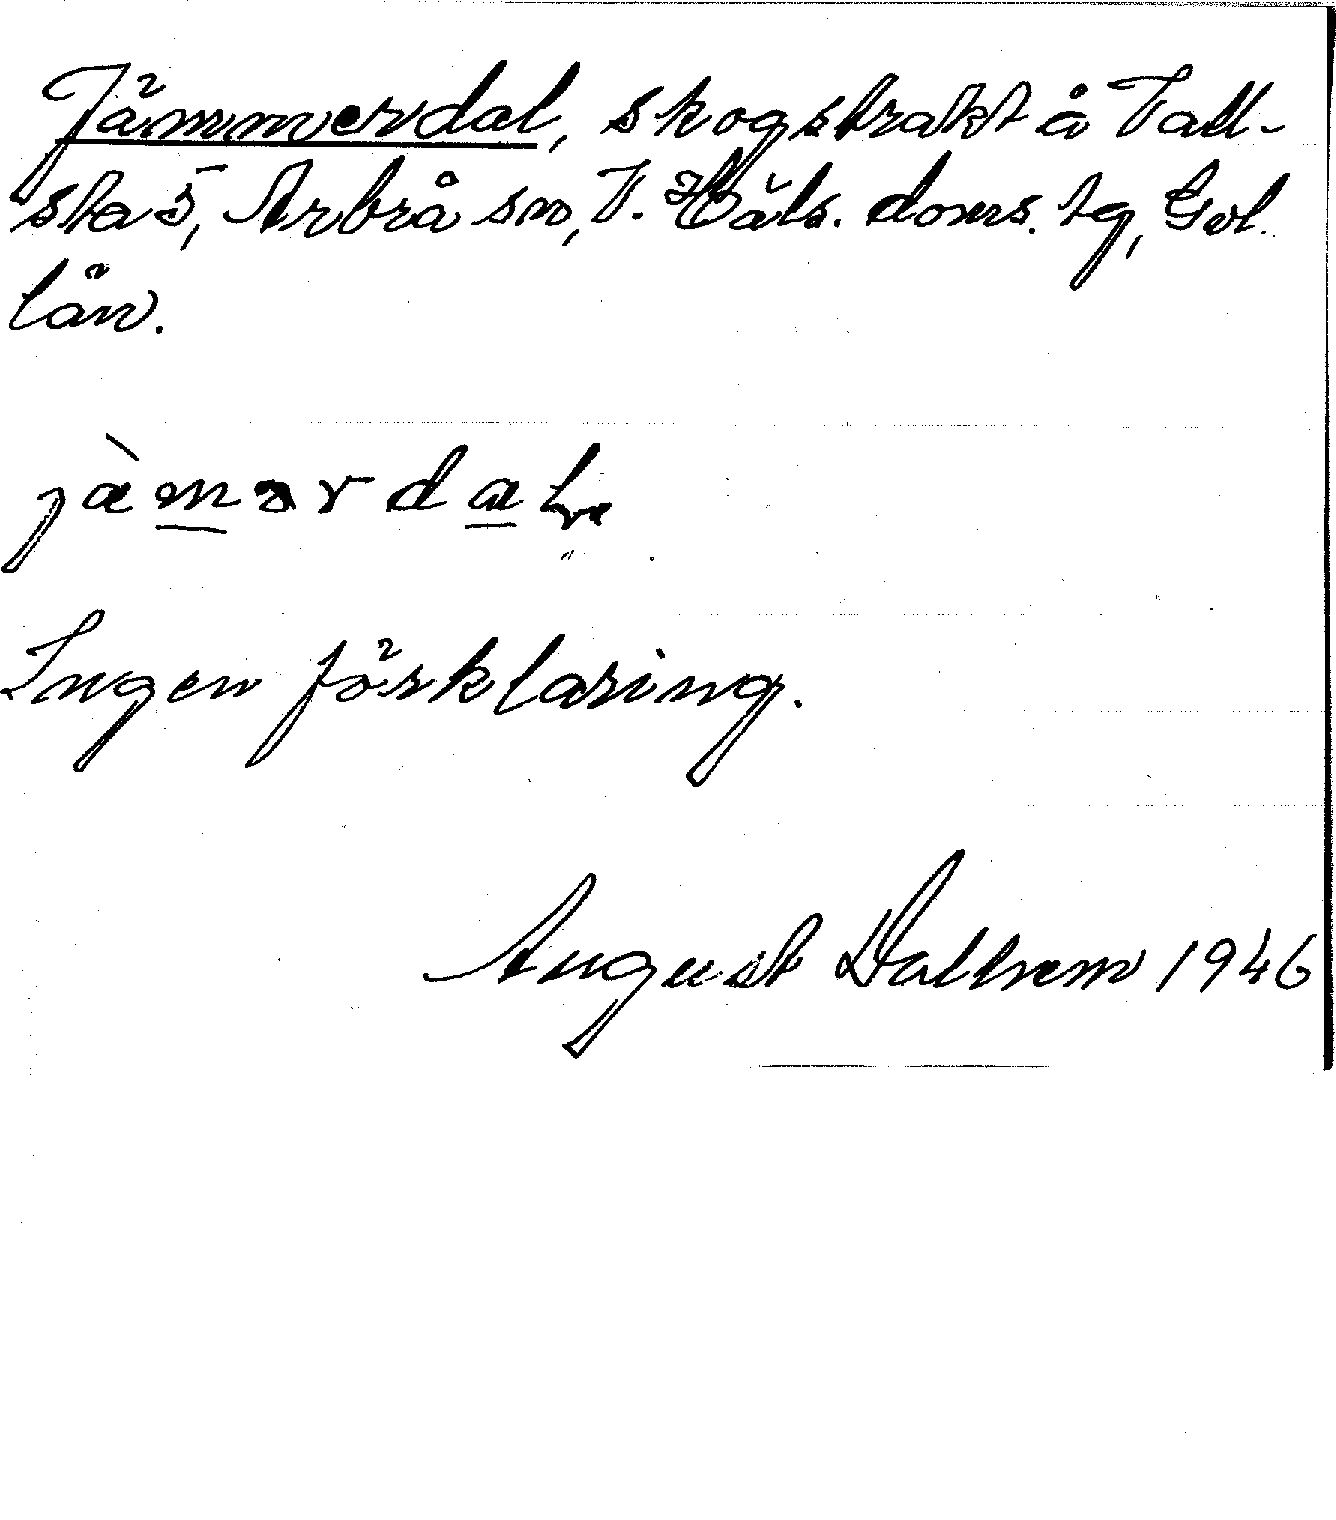 Jämmerdal, skogstrakt å Vall-
sta 5, Arbrå sn, V. Häls. doms. tg, Gvl.
län.
jæ̀mərdal
Ingen förklaring.
August Dalhem 1946